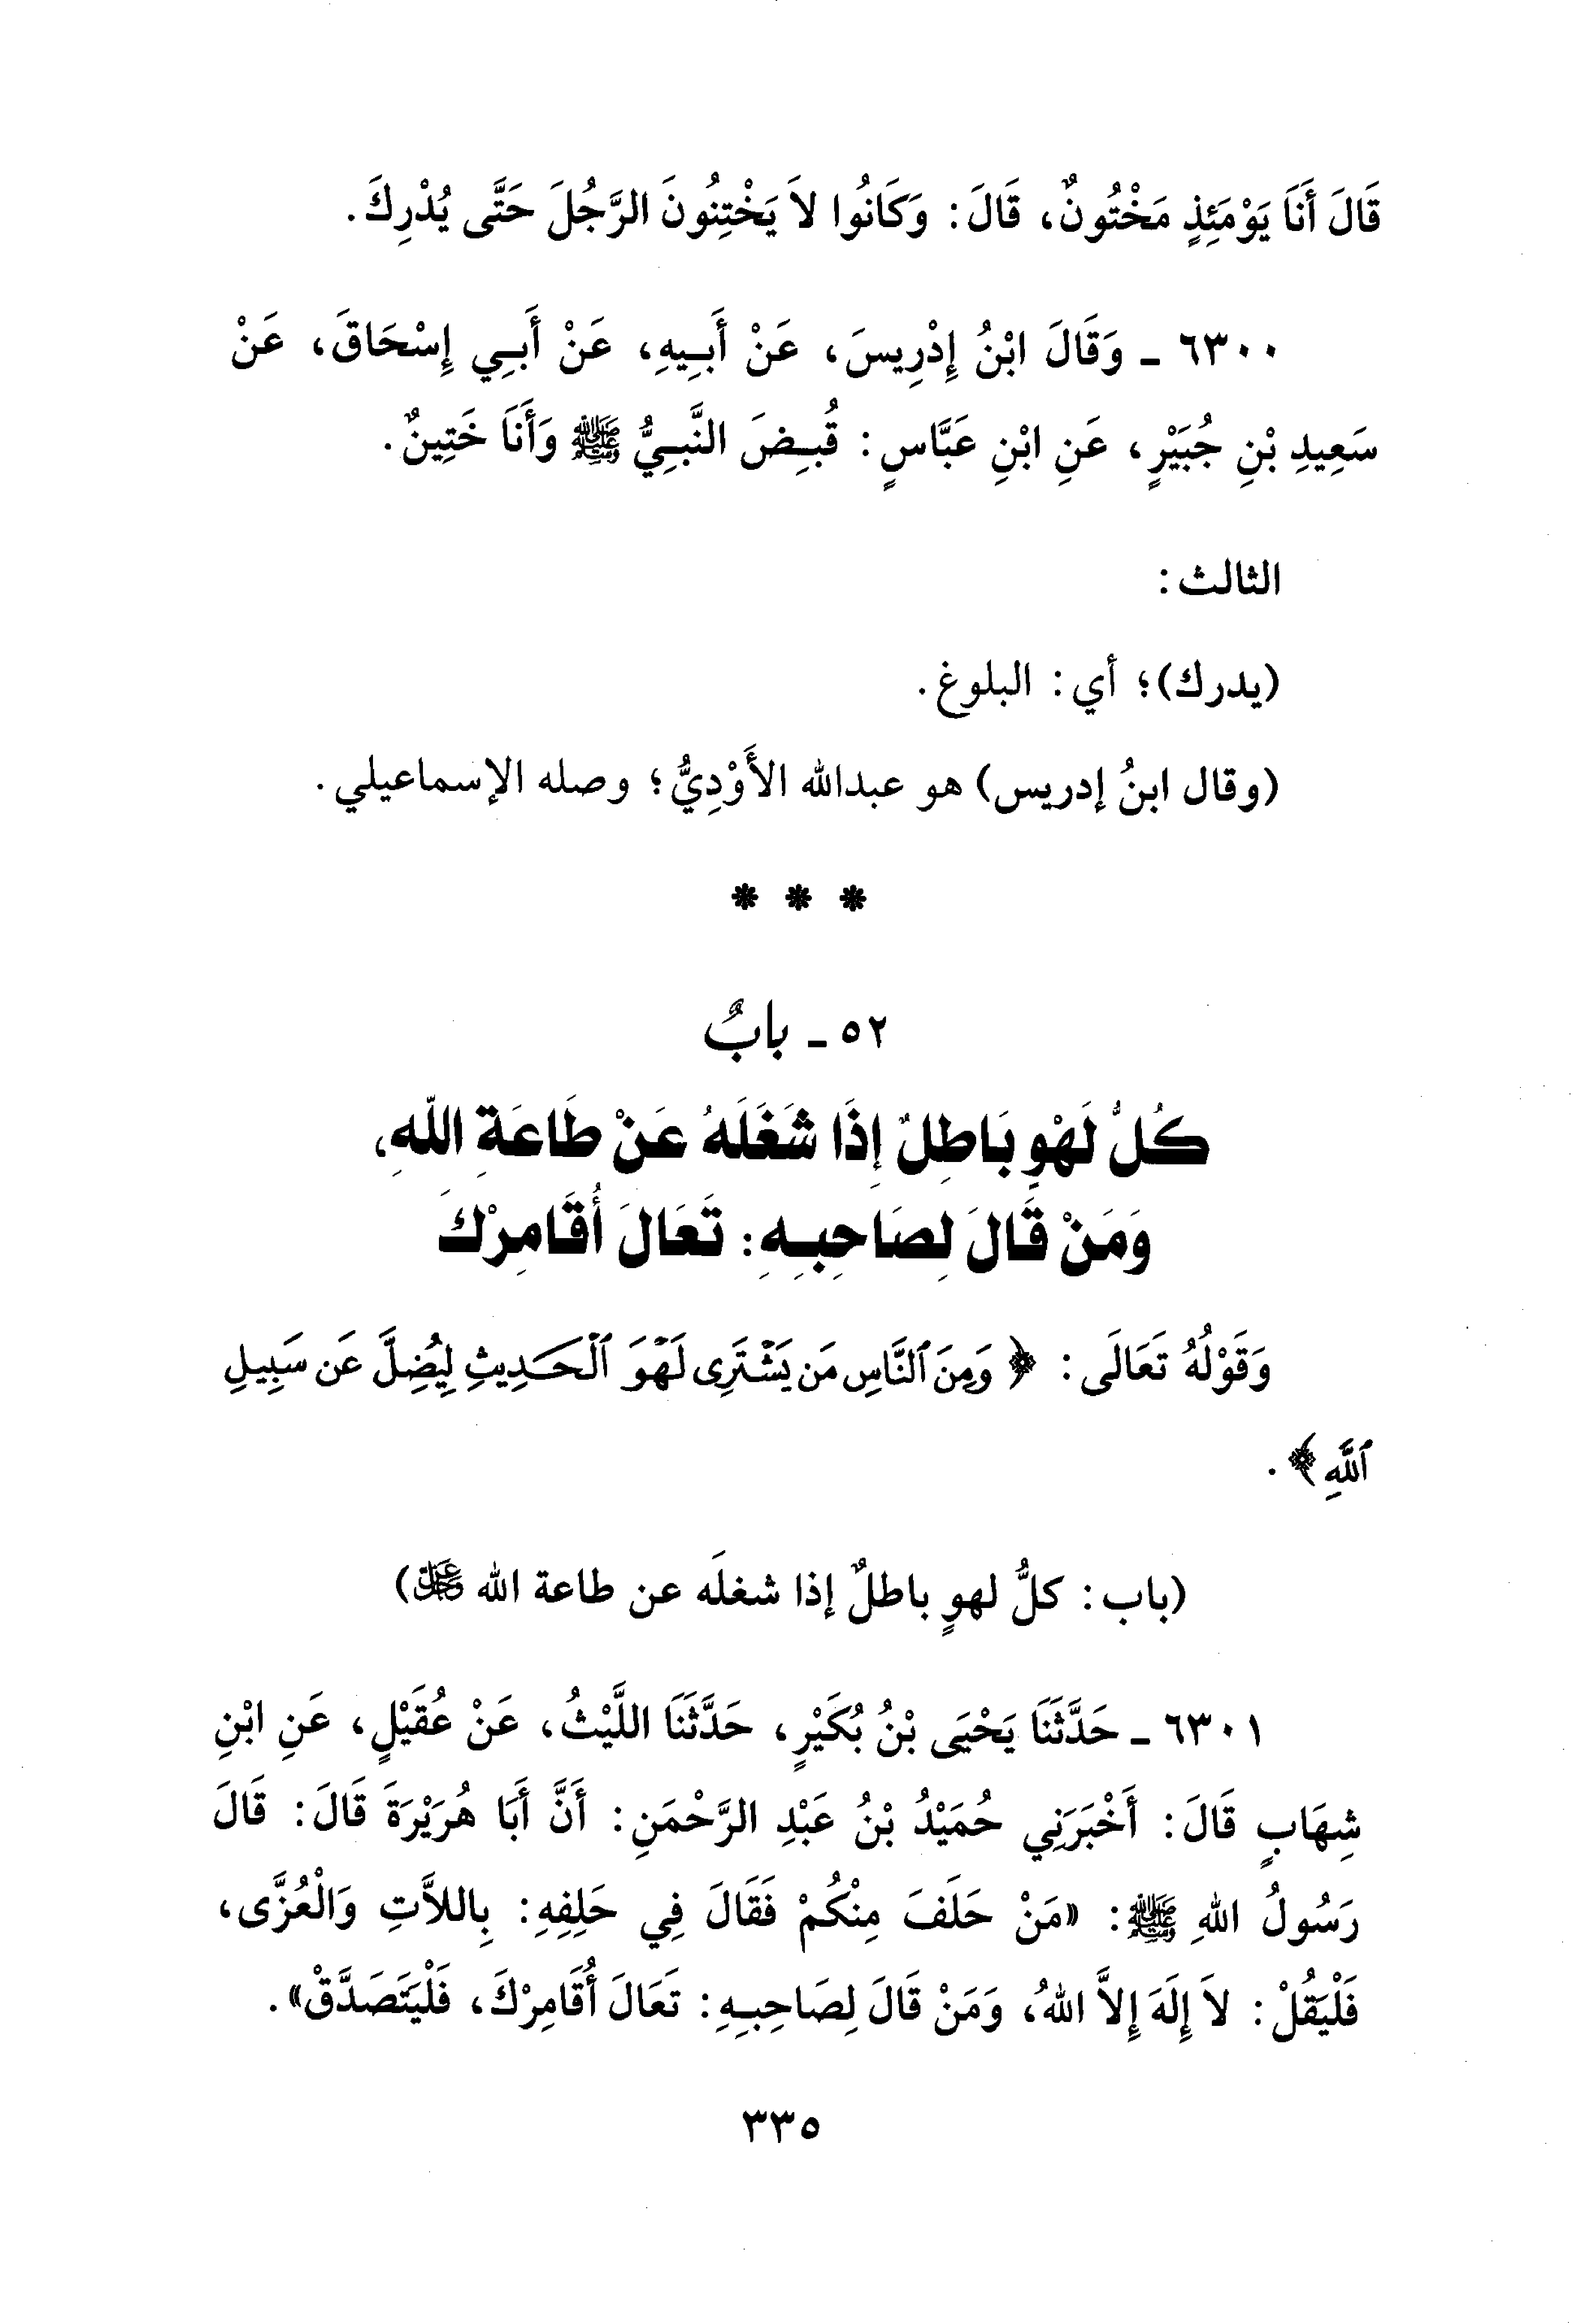 قَالَ أَنَا يَوْمَئِذٍ مَخْتُونٌ، قَالَ: وَكَانُوا لاَ يَخْتِنُونَ الرَّجُلَ حَتَّى يُدْرِكَ.
٦٣٠٠ ـ وَقَالَ ابْنُ إِدْرِيسَ، عَنْ أَبِيهِ، عَنْ أَبِي إِسْحَاقَ، عَنْ
سَعِيدِ بْنِ جُبَيْرٍ، عَنِ ابْنِ عَبَّاسٍ: قُبِضَ النَّبِيُّ ﷺ وَأَنَا خَتِينٌ.
الثالث:
(يدرك)؛ أي: البلوغ.
(وقال ابنُ إدريس) هو عبدالله الأَوْدِيُّ؛ وصله الإسماعيلي.
* * *
٥٢ ـ بابٌ
كُلُّ لَهْوٍ بَاطِلٌ إِذَا شَغَلَهُ عَنْ طَاعَةِ اللَّهِ،
وَمَنْ قَالَ لِصَاحِبِهِ: تَعَالَ أُقَامِرْكَ
وَقَوْلُهُ تَعَالَى: ﴿وَمِنَ ٱلنَّاسِ مَن يَشْتَرِى لَهْوَ ٱلْحَدِيثِ لِيُضِلَّ عَن سَبِيلِ
ٱللَّهِ﴾.
(باب: كلُّ لهوٍ باطلٌ إذا شغلَه عن طاعة الله عَزَّ وَجَلَّ)
٦٣٠١ ـ حَدَّثَنَا يَحْيَى بْنُ بُكَيْرٍ، حَدَّثَنَا اللَّيْثُ، عَنْ عُقَيْلٍ، عَنِ ابْنِ
شِهَابٍ قَالَ: أَخْبَرَنِي حُمَيْدُ بْنُ عَبْدِ الرَّحْمَنِ: أَنَّ أَبَا هُرَيْرَةَ قَالَ: قَالَ
رَسُولُ اللهِ ﷺ: «مَنْ حَلَفَ مِنْكُمْ فَقَالَ فِي حَلِفِهِ: بِاللاَّتِ وَالْعُزَّى،
فَلْيَقُلْ: لاَ إِلَهَ إِلاَّ اللهُ، وَمَنْ قَالَ لِصَاحِبِهِ: تَعَالَ أُقَامِرْكَ، فَلْيَتَصَدَّقْ».
٣٣٥